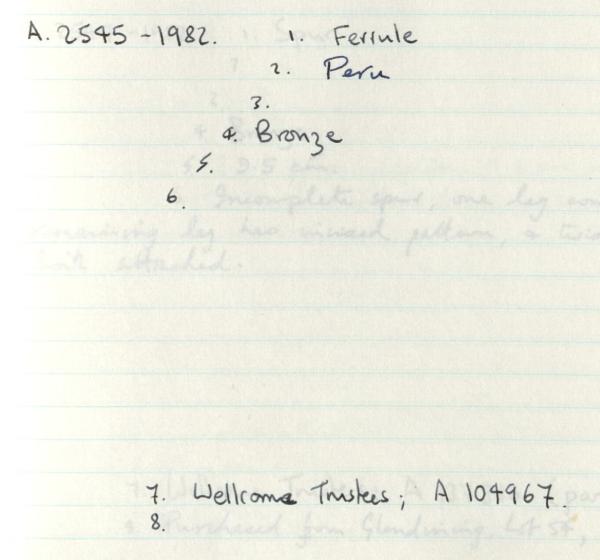 A. 2545 - 1982. 1. Ferrule
2. Peru
3.
4. Bronze
5.
6.
7. Wellcome Trustees; A 104967
8.